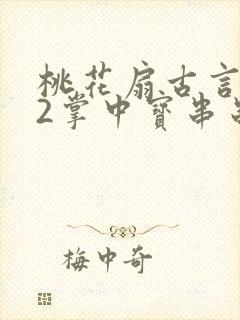 桃花扇古言
2掌中寶串
梅中奇